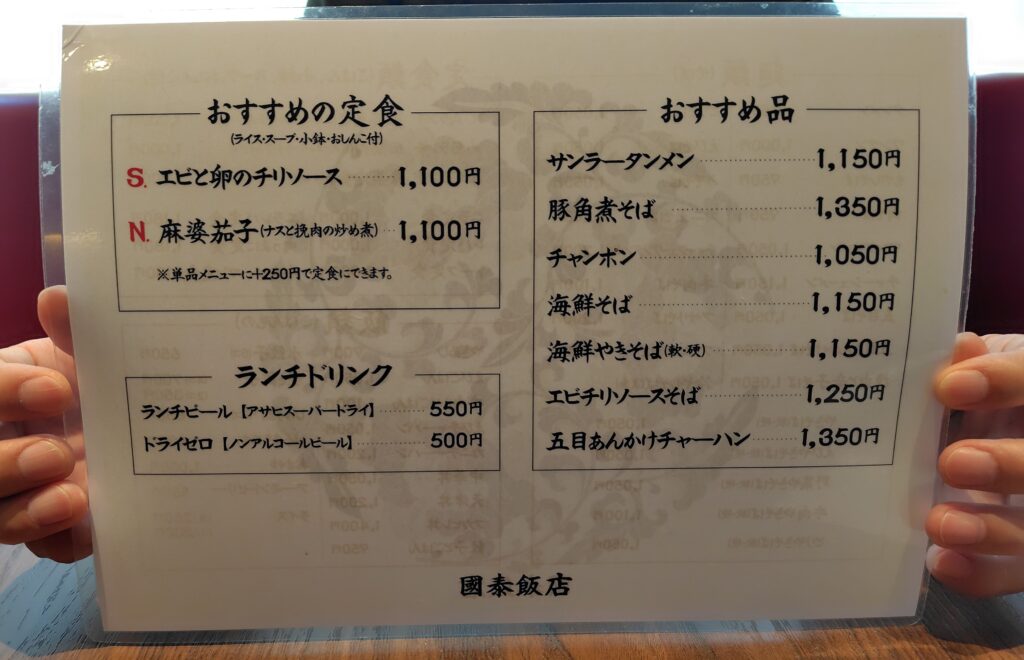 おすすめの定食
(ライス・スープ・小鉢・おしんこ付)
S. エビと卵のチリソース 1,100円
N. 麻婆茄子(ナスと挽肉の炒め煮) 1,100円
※単品メニューに+250円で定食にできます。
ランチドリンク
ランチビール【アサヒスーパードライ】 550円
ドライゼロ【ノンアルコールビール】 500円
おすすめ品
サンラータンメン 1,150円
豚角煮そば 1,350円
チャンポン 1,050円
海鮮そば 1,150円
海鮮やきそば(軟・硬) 1,150円
エビチリソースそば 1,250円
五目あんかけチャーハン 1,350円
國泰飯店